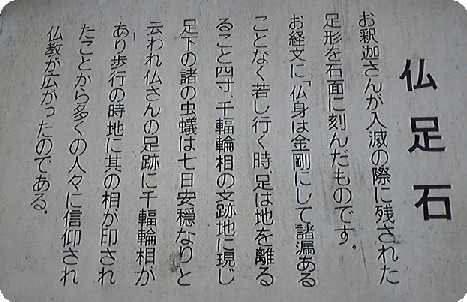 仏足石
お釈迦さんが入滅の際に残された
足形を石面に刻んたものです.
お経文に「仏身は金剛にして諸漏ある
ことなく若し行く時、足は地を離る
ること四寸、千輻輪相の文跡地に現じ
足下の諸の虫蟻は七日安穏なりと
云われ仏さんの足跡に千輻輪相が
あり歩行の時地に其の相が印され
たことから多くの人々に信仰され
仏教が広がったのである.